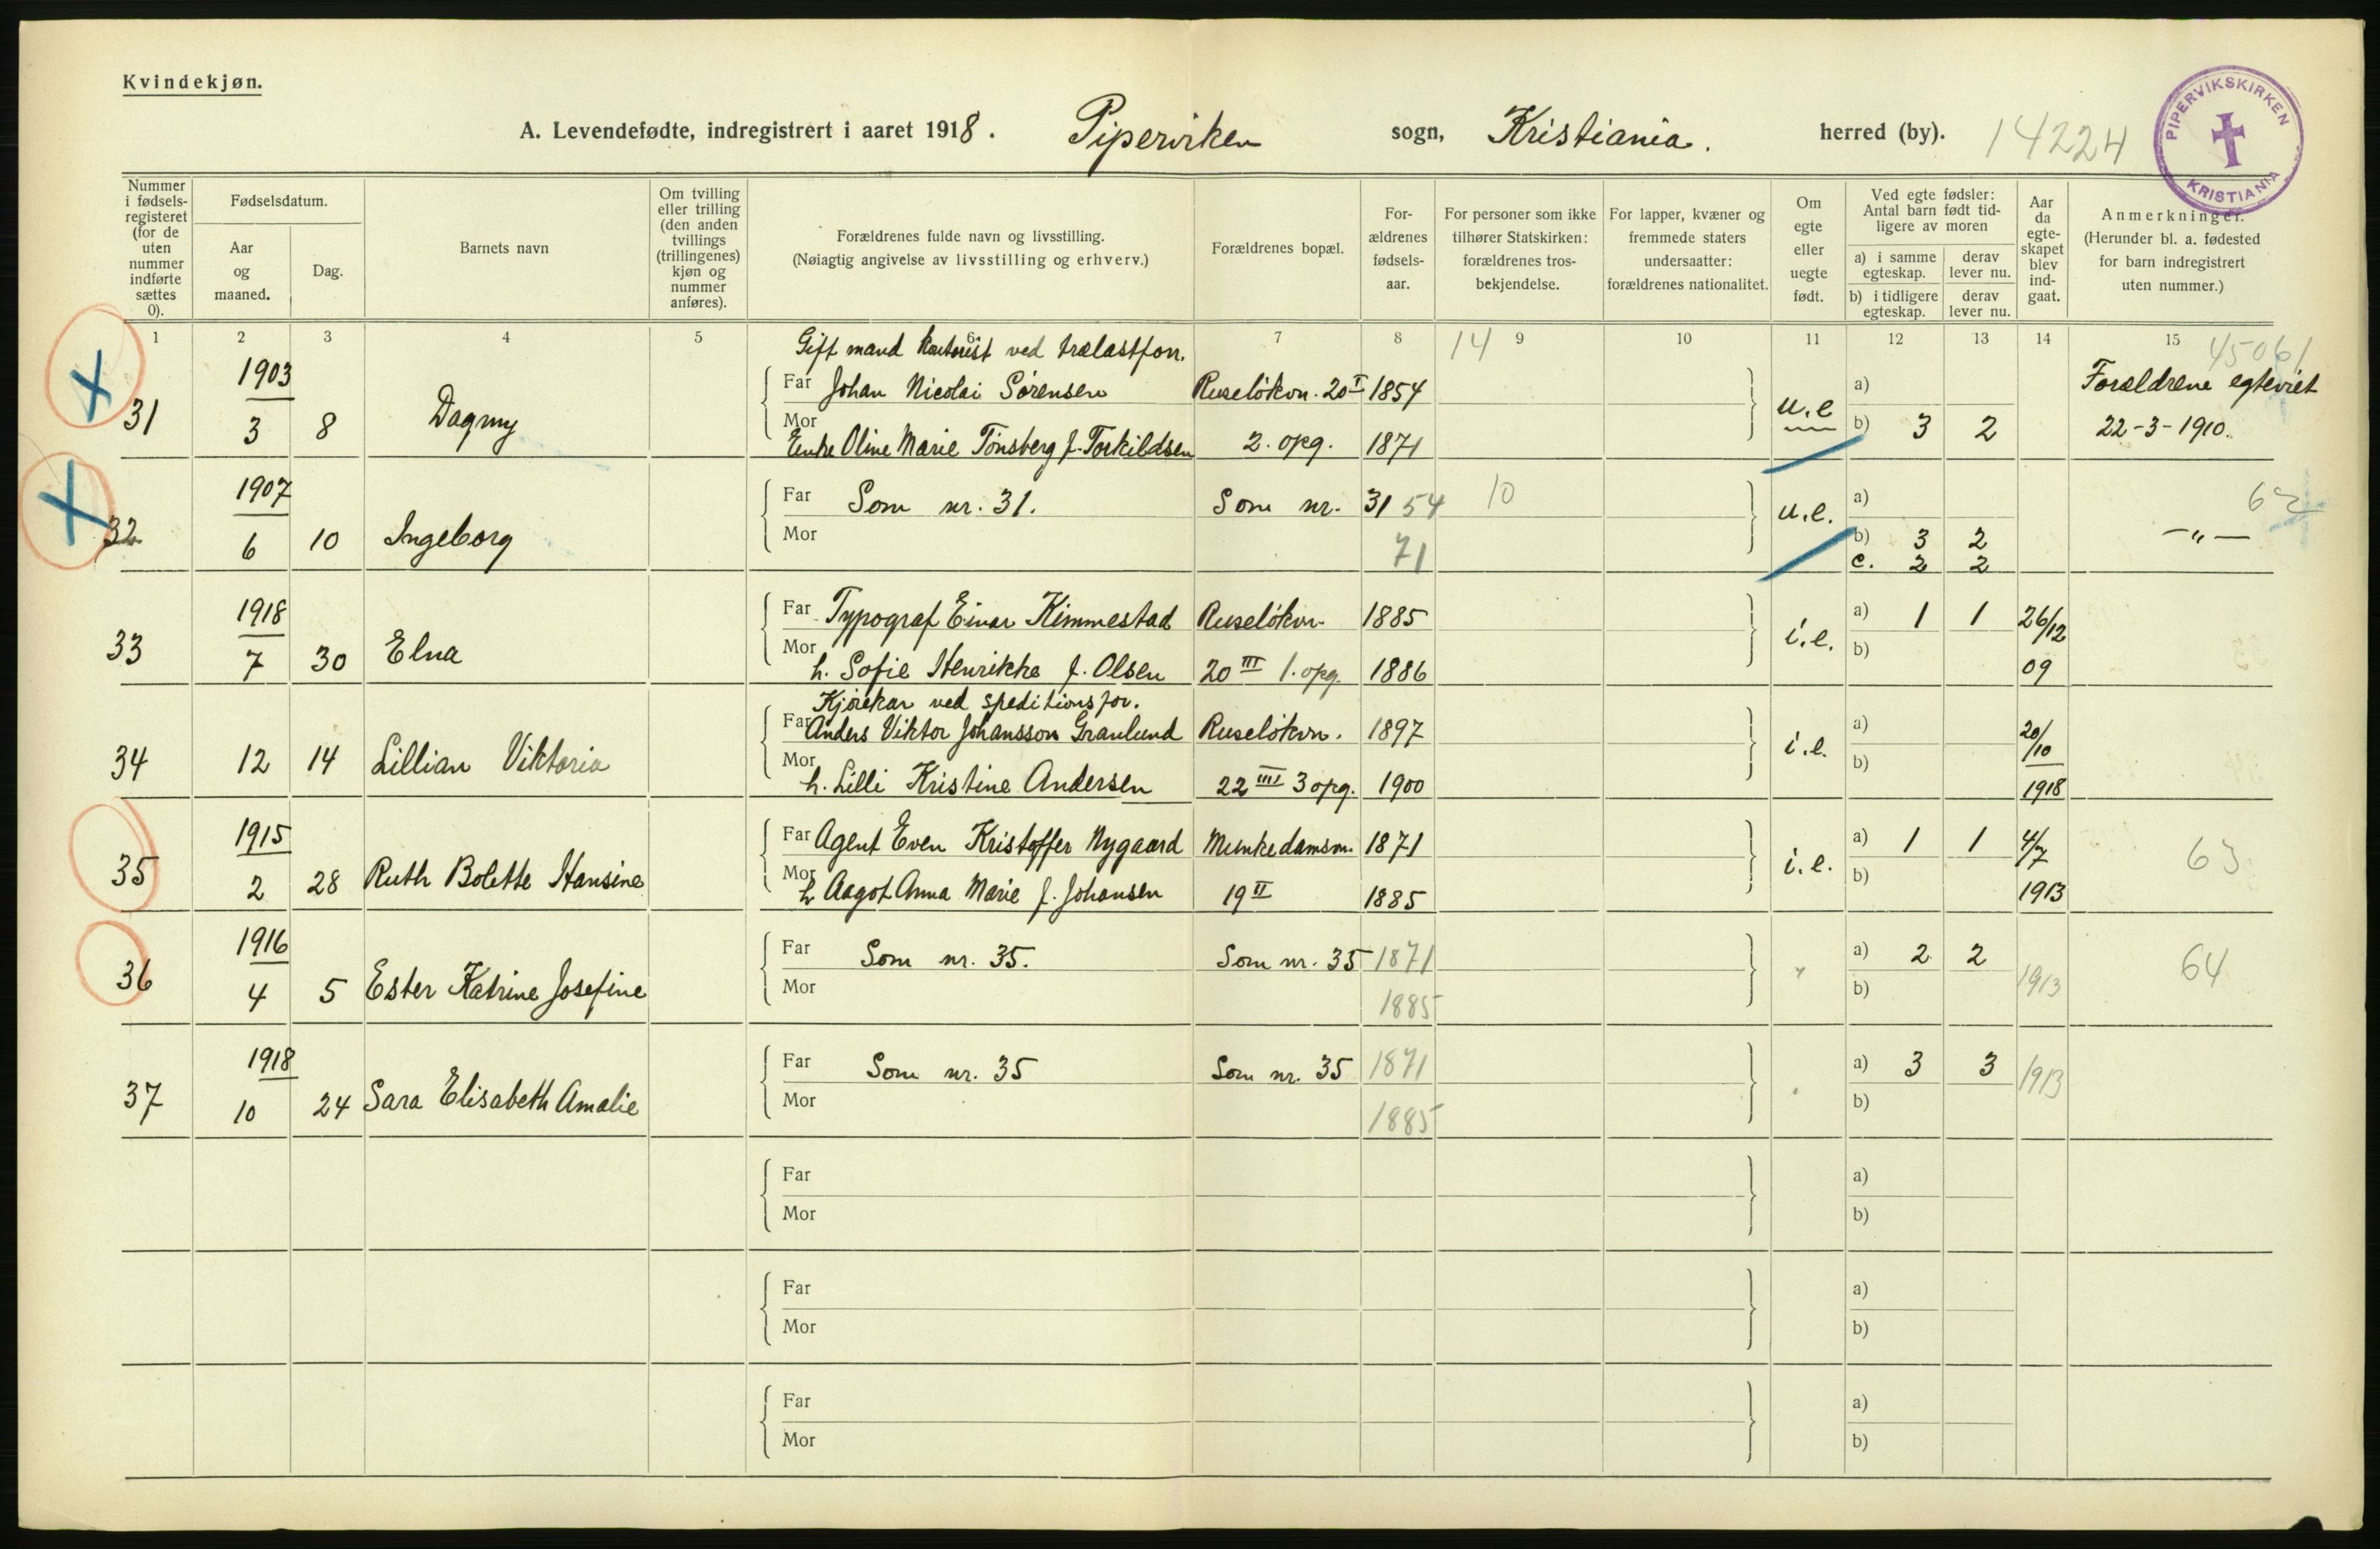 Kvindekjøn.
A. Levendefødte, indregistrert i aaret 1918. Piperviken sogn, Kristiania. herred (by). 14224
PIPERVIKSKIRKEN KRISTIANIA
Nummer i fødsels-registeret (for de uten nummer indførte sættes 0).
Fødselsdatum.
Aar og maaned.
Dag.
Barnets navn
Om tvilling eller trilling (den anden tvillings (trillingenes) kjøn og nummer anføres).
Forældrenes fulde navn og livsstilling.
(Nøiagtig angivelse av livsstilling og erhverv.)
Forældrenes bopæl.
For-ældrenes fødsels-aar.
For personer som ikke tilhører Statskirken: forældrenes tros-bekjendelse.
For lapper, kvæner og fremmede staters undersaatter: forældrenes nationalitet.
Om egte eller uegte født.
Ved egte fødsler: Antal barn født tid-ligere av moren
a) i samme egteskap.
derav lever nu.
b) i tidligere egteskap.
derav lever nu.
Aar da egte-skapet blev ind-gaat.
Anmerkninger.
(Herunder bl. a. fødested for barn indregistrert uten nummer.)
1 2 3 4 5 6 7 8 9 10 11 12 13 14 15
14 45061
Gift mand Kontorist ved trælastforr.
1903 Far Johan Nicolai Sørensen Ruseløkvn. 20 I 1854 a) Forældrene egteviet
31 3 8 Dagmy Mor Enke Oline Marie Tønsberg f. Torkildsen 2. opg. 1871 u.e b) 3 2 22-3-1910.
1907 Far Som nr. 31. Som nr. 31 54 10 a) 62
32 6 10 Ingeborg Mor 71 u.e. b) 3 2 -"-
c. 2 2
1918 Far Typograf Einar Kimmestad Ruseløkvn. 1885 a) 1 1 26/12
33 7 30 Elna Mor h. Sofie Henrikke f. Olsen 20 III 1. opg. 1886 i.e. b) 09
Kjørekar ved speditionsfor.
Far Anders Viktor Johansson Granlund Ruseløkvn. 1897 a) 20/10
34 12 14 Lillian Viktoria Mor h. Lilli Kristine Andersen 22 IIII 3 opg. 1900 i.e. b) 1918
1915 Far Agent Even Kristoffer Nygaard Munkedamsvn. 1871 a) 1 1 4/7 63
35 2 28 Ruth Bolette Hansine Mor h Aagot Anna Marie f. Johansen 19 II 1885 i.e. b) 1913
1916 Far Som nr. 35. Som nr. 35 1871 a) 2 2 64
36 4 5 Ester Katrine Josefine Mor 1885 " b) 1913
1918 Far Som nr. 35 Som nr. 35 1871 a) 3 3 1913
37 10 24 Sara Elisabeth Amalie Mor 1885 b)
Far a)
Mor b)
Far a)
Mor b)
Far a)
Mor b)